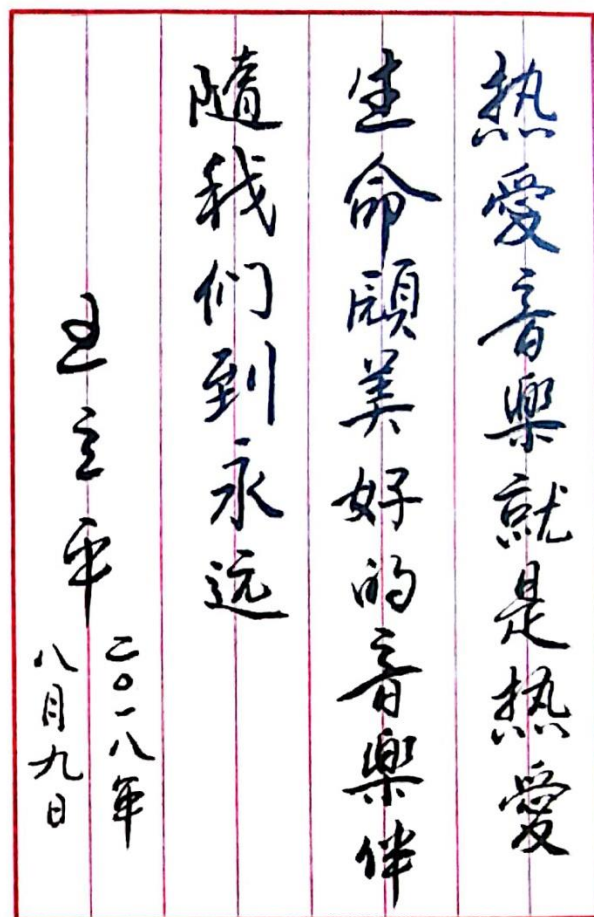 热愛音樂就是热愛
生命願美好的音樂伴
隨我们到永远
王立平
二〇一八年
八月九日